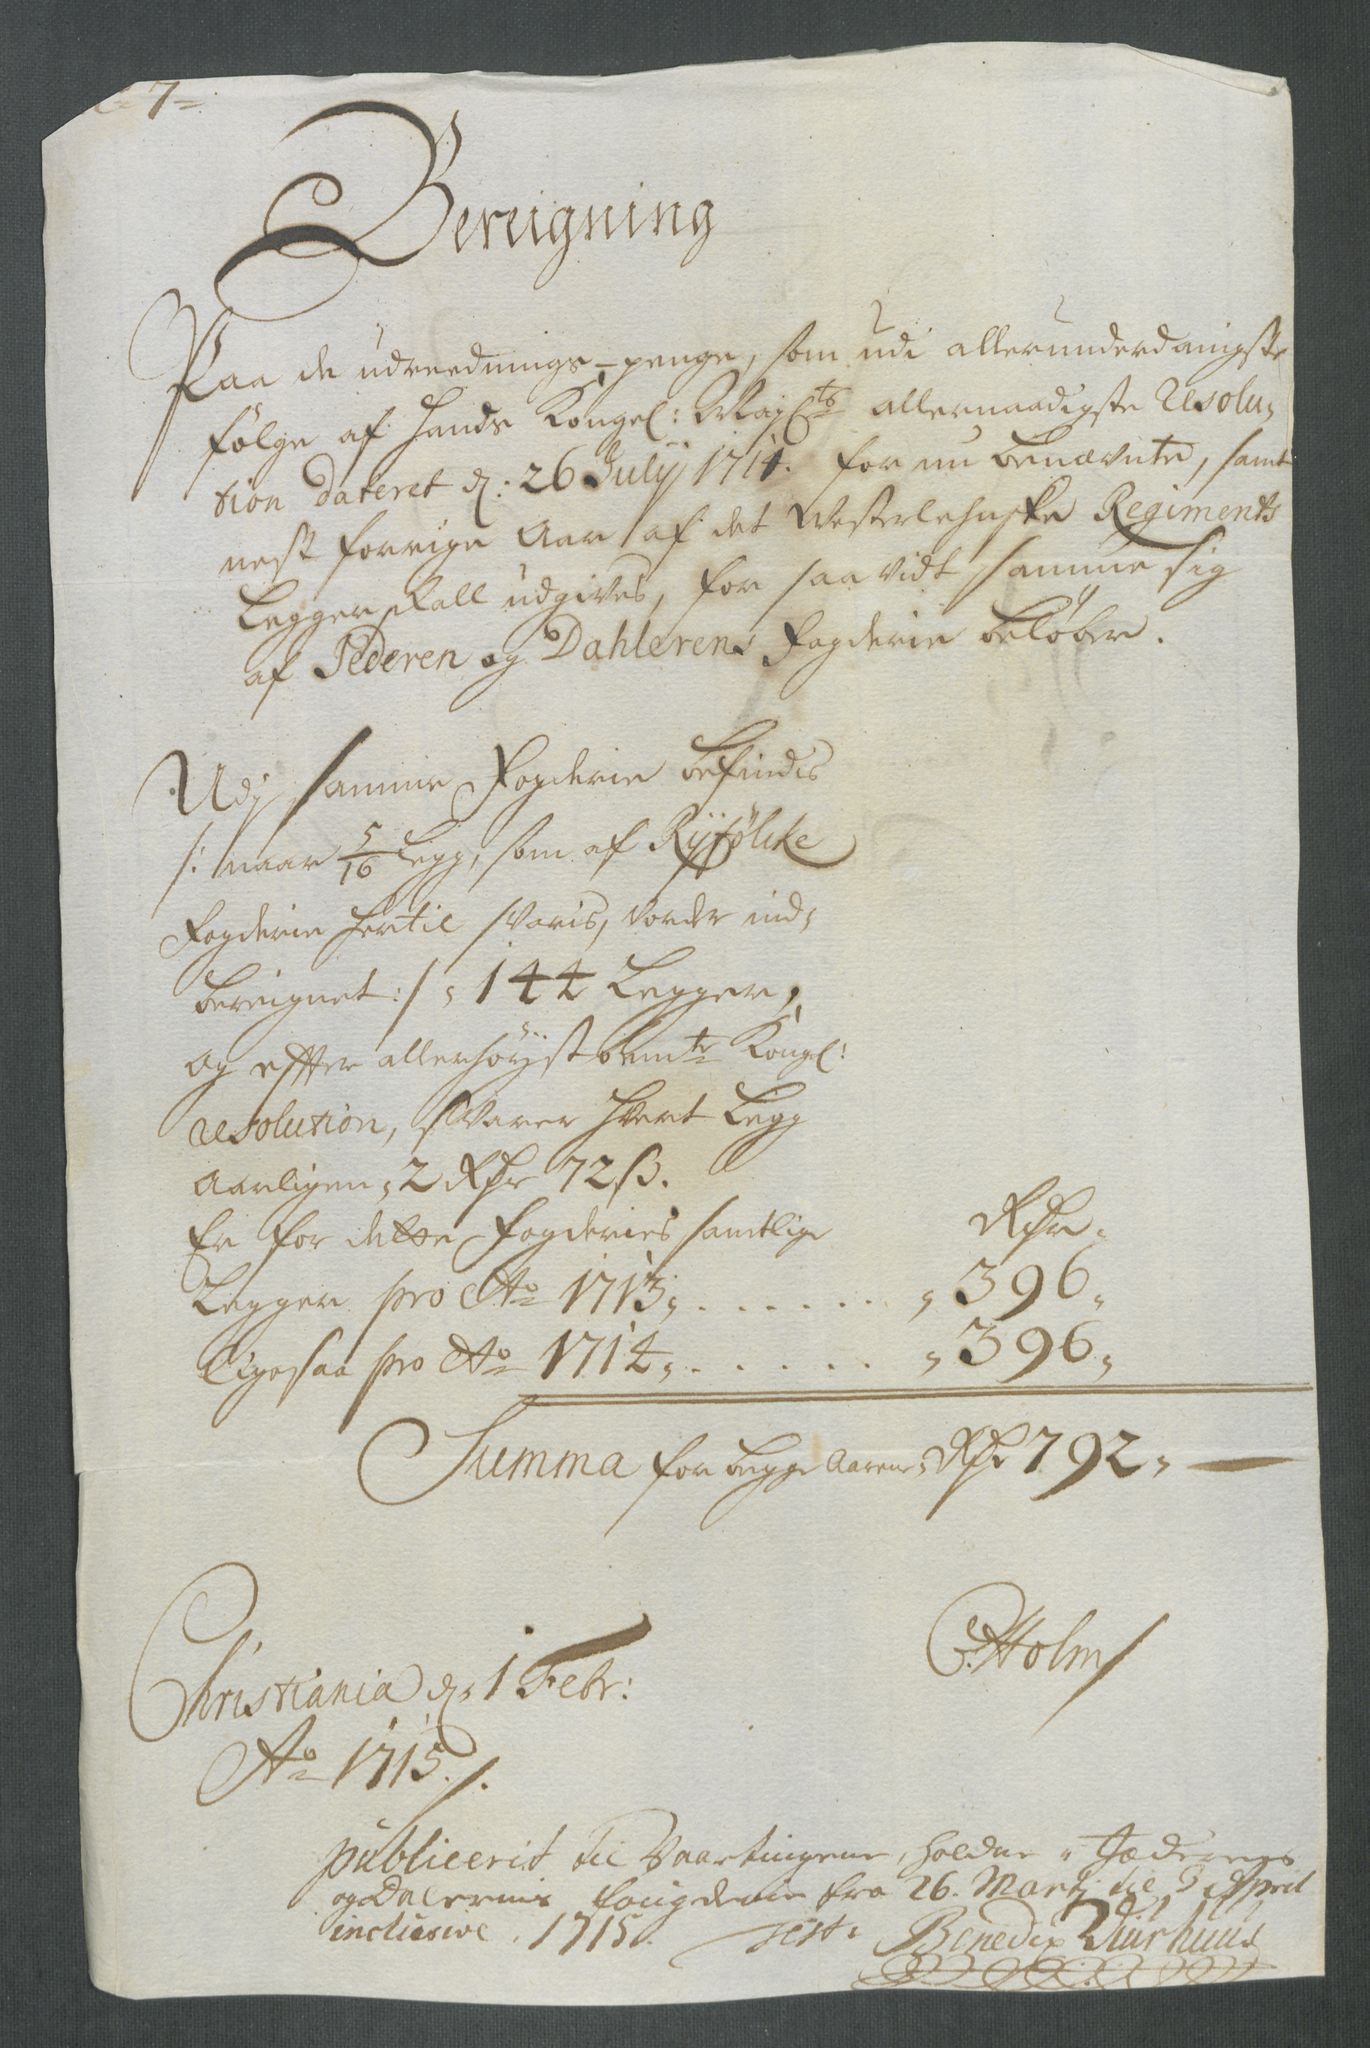 =7=
Bereigning
Paa de udreednings-penge, som udi allerunderdanigste
følge af Hands Kongel: Mayts allernaadigste Resolu-
tion dateret d: 26 Julij 1714. for nu benævnte, samt
nest forrige Aar af det Westerlehnske Regiments
Legger skall udgives, for saa vidt samme sig
af Jederen og Dahlerens Fogderie beløber.
Udj samme Fogderie befindes
/: naar 5/16 Legg, som af Ryfølcke
Fogderie hertil svaris, vorder ind-
bereignet :/ 144 Legger,
og efter allerhøyst bemte Kongel:
resolution, svarer hvert Legg
Aarligen 2 Rdr 72 ß.
Er for dette Fogderies samtlige Rdr
Legger pro Ao 1713, . . . . . . 396,
Ligesaa pro Ao 1714, . . . . . . 396,
Summa for begge Aarene Rdr 792,
Christiania d. 1 Febr:
C. Holm
Ao 1715./.
publicerit til Vaartingene, holdne i Jæderens
og Dalernis fougderie fra 26. Martj til 5 April
inclusive 1715. test. Benedix Diurhuus